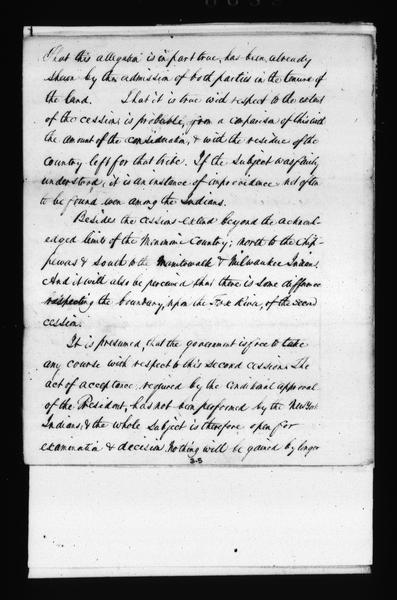 That this allegation is in part true, has been already
shewn by the admission of both parties in the tenure of
the land. That it is true with respect to the extent
of the cession is probable, from a comparison of this with
the amount of the consideration, & with the residue of the
country left for that tribe. If the subject was fairly
understood, it is an instance of improvidence not often
to be found even among the Indians.
Besides the cessions extend beyond the acknowl-
edged limits of the Menomini Country; north to the Chip-
pewas & South to the Manitowalk & Milwaukee Indians.
And it will also be perceived that there is some difference
respecting the boundary, upon the Fox River, of the second
cession.
It is presumed, that the government is free to take
any course with respect to this second cession. The
act of acceptance, required by the conditional approval
of the President, has not been performed by the New York
Indians, & the whole subject is therefore open for
examination & decision. Nothing will be gained by longer